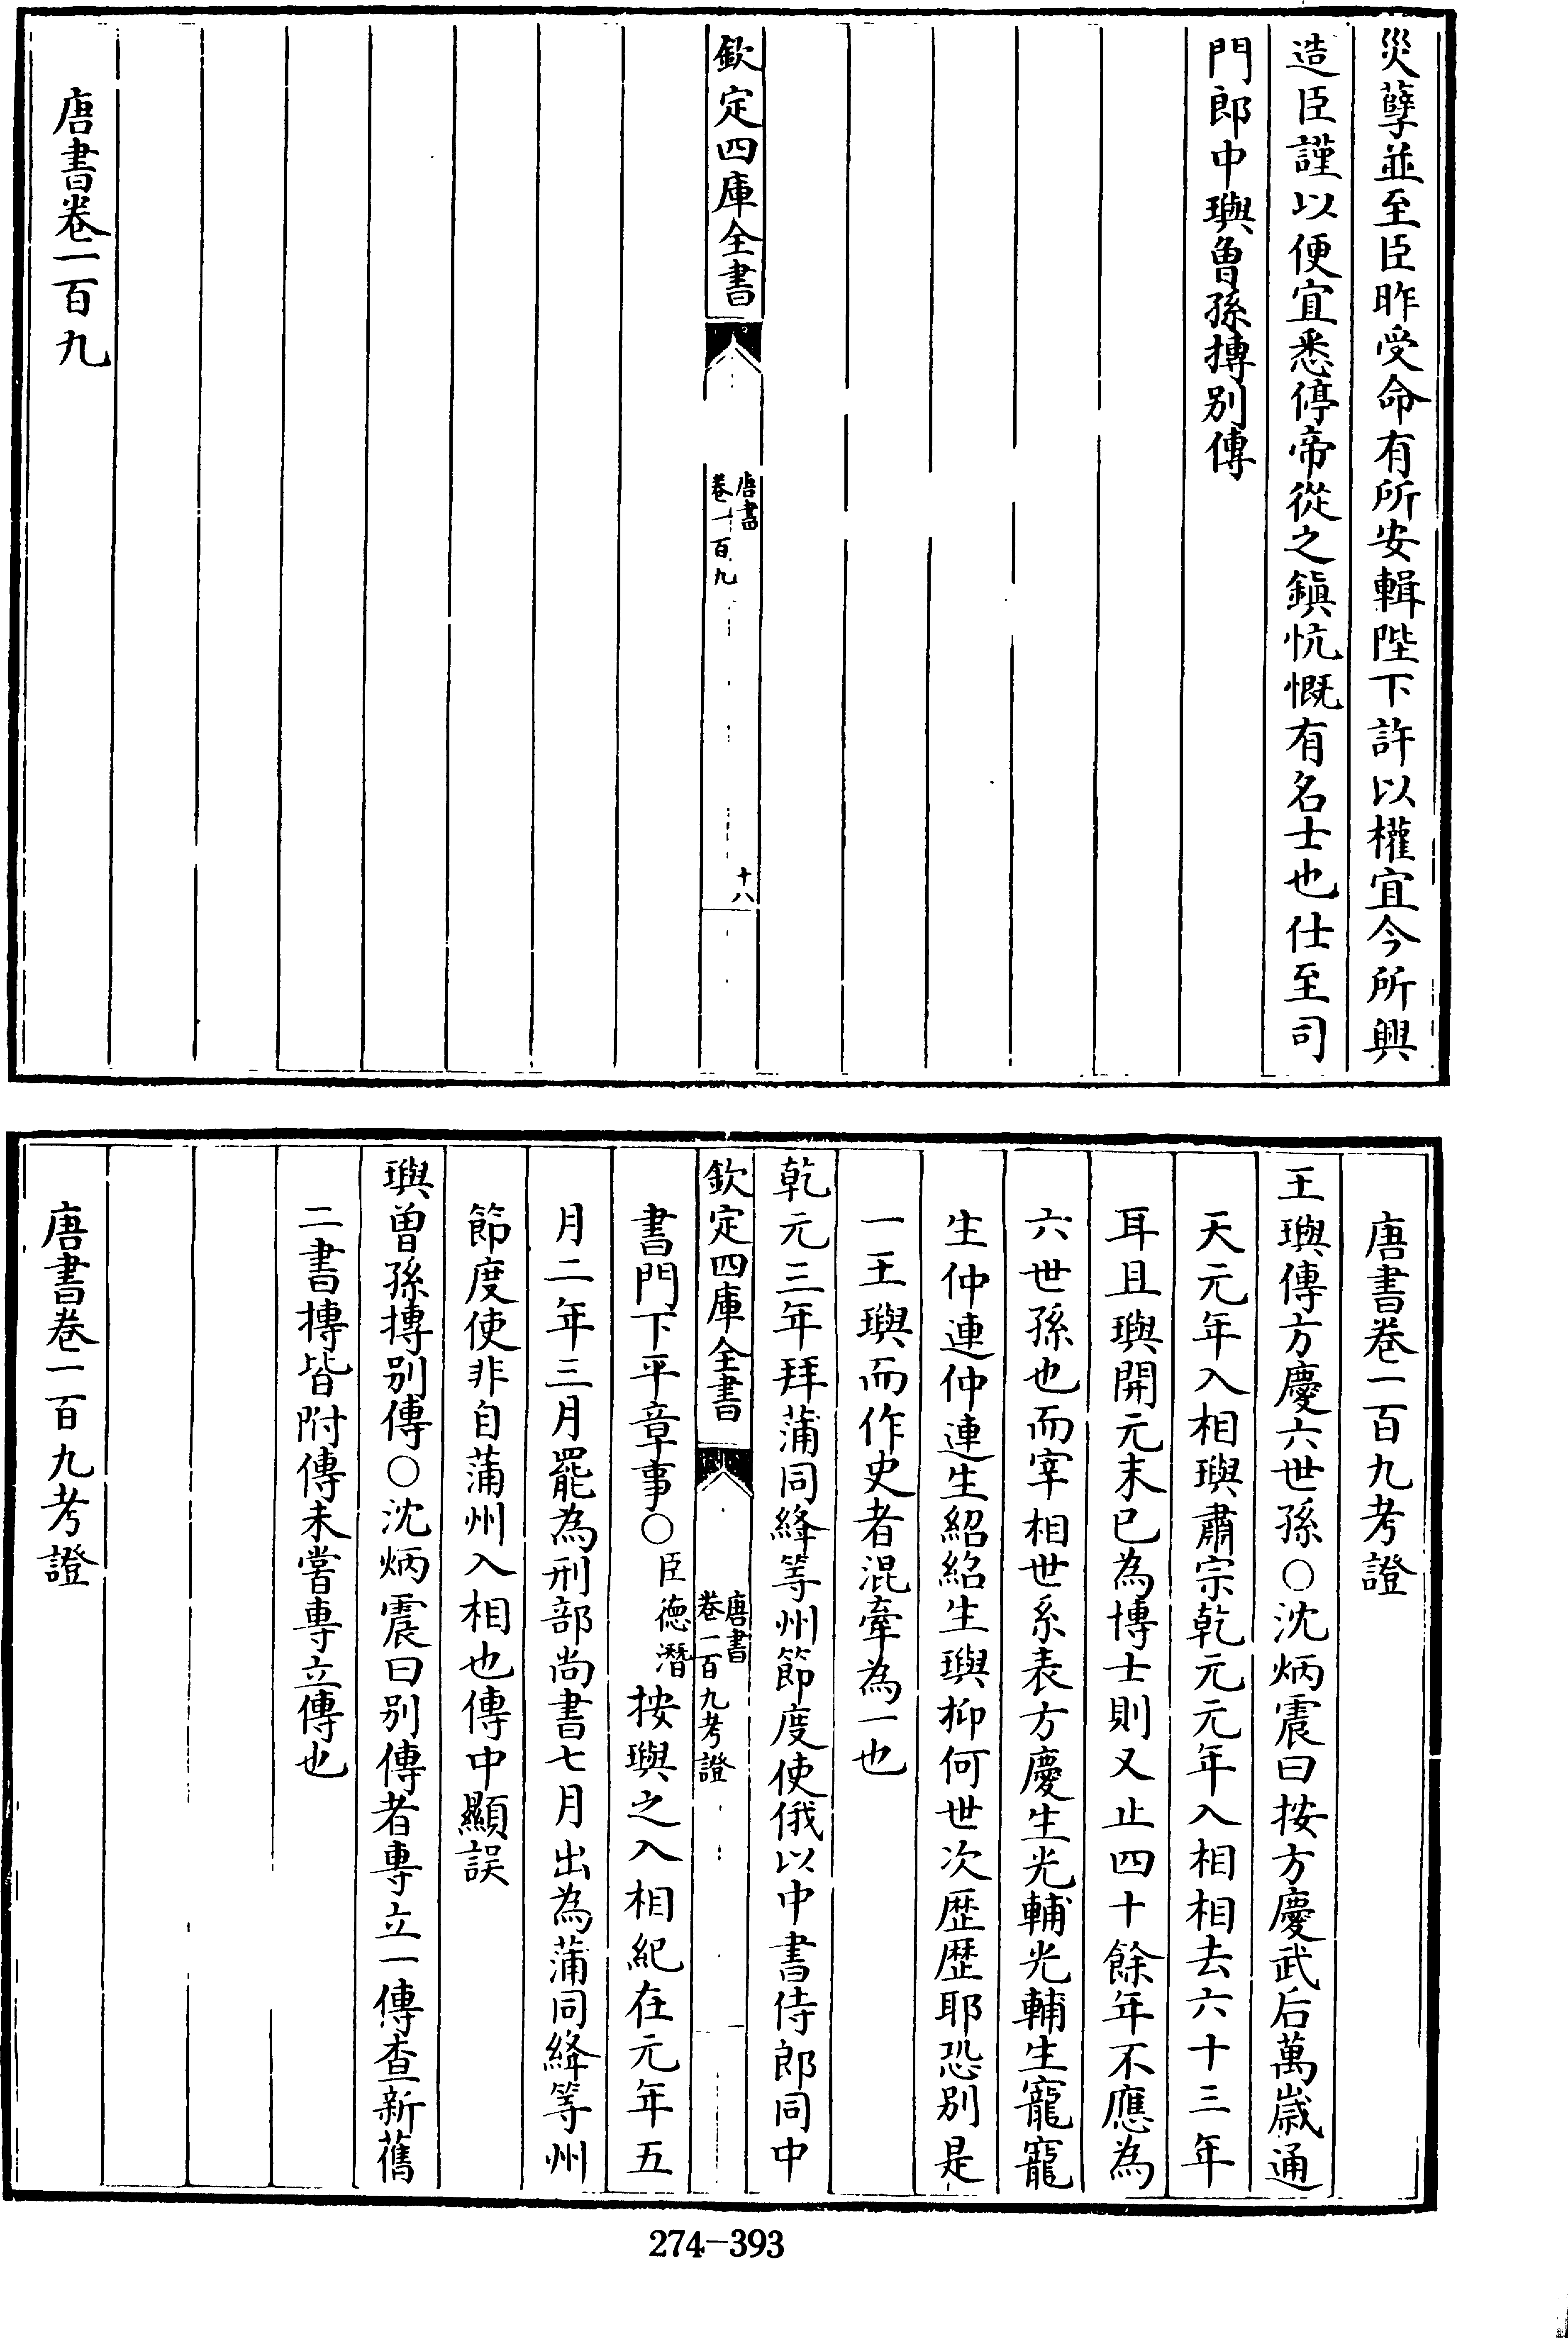 災孽並至臣昨受命有所安輯陛下許以權宜今所興
造臣謹以便宜悉停帝從之鎮忼慨有名士也仕至司
門郎中璵曾孫摶别傳
欽定四庫全書
唐書
卷一百九
十八
唐書卷一百九
唐書卷一百九考證
王璵傳方慶六世孫○沈炳震曰按方慶武后萬歲通
天元年入相璵肅宗乾元元年入相相去六十三年
耳且璵開元末已為博士則又止四十餘年不應為
六世孫也而宰相世系表方慶生光輔光輔生寵寵
生仲連仲連生紹紹生璵抑何世次歴歴耶恐别是
一王璵而作史者混牽為一也
乾元三年拜蒲同絳等州節度使俄以中書侍郎同中
欽定四庫全書
唐書
卷一百九考證
書門下平章事○臣德潛按璵之入相紀在元年五
月二年三月罷為刑部尚書七月出為蒲同絳等州
節度使非自蒲州入相也傳中顯誤
璵曾孫摶别傳○沈炳震曰别傳者專立一傳查新舊
二書摶皆附傳未嘗專立傳也
唐書卷一百九考證
274-393